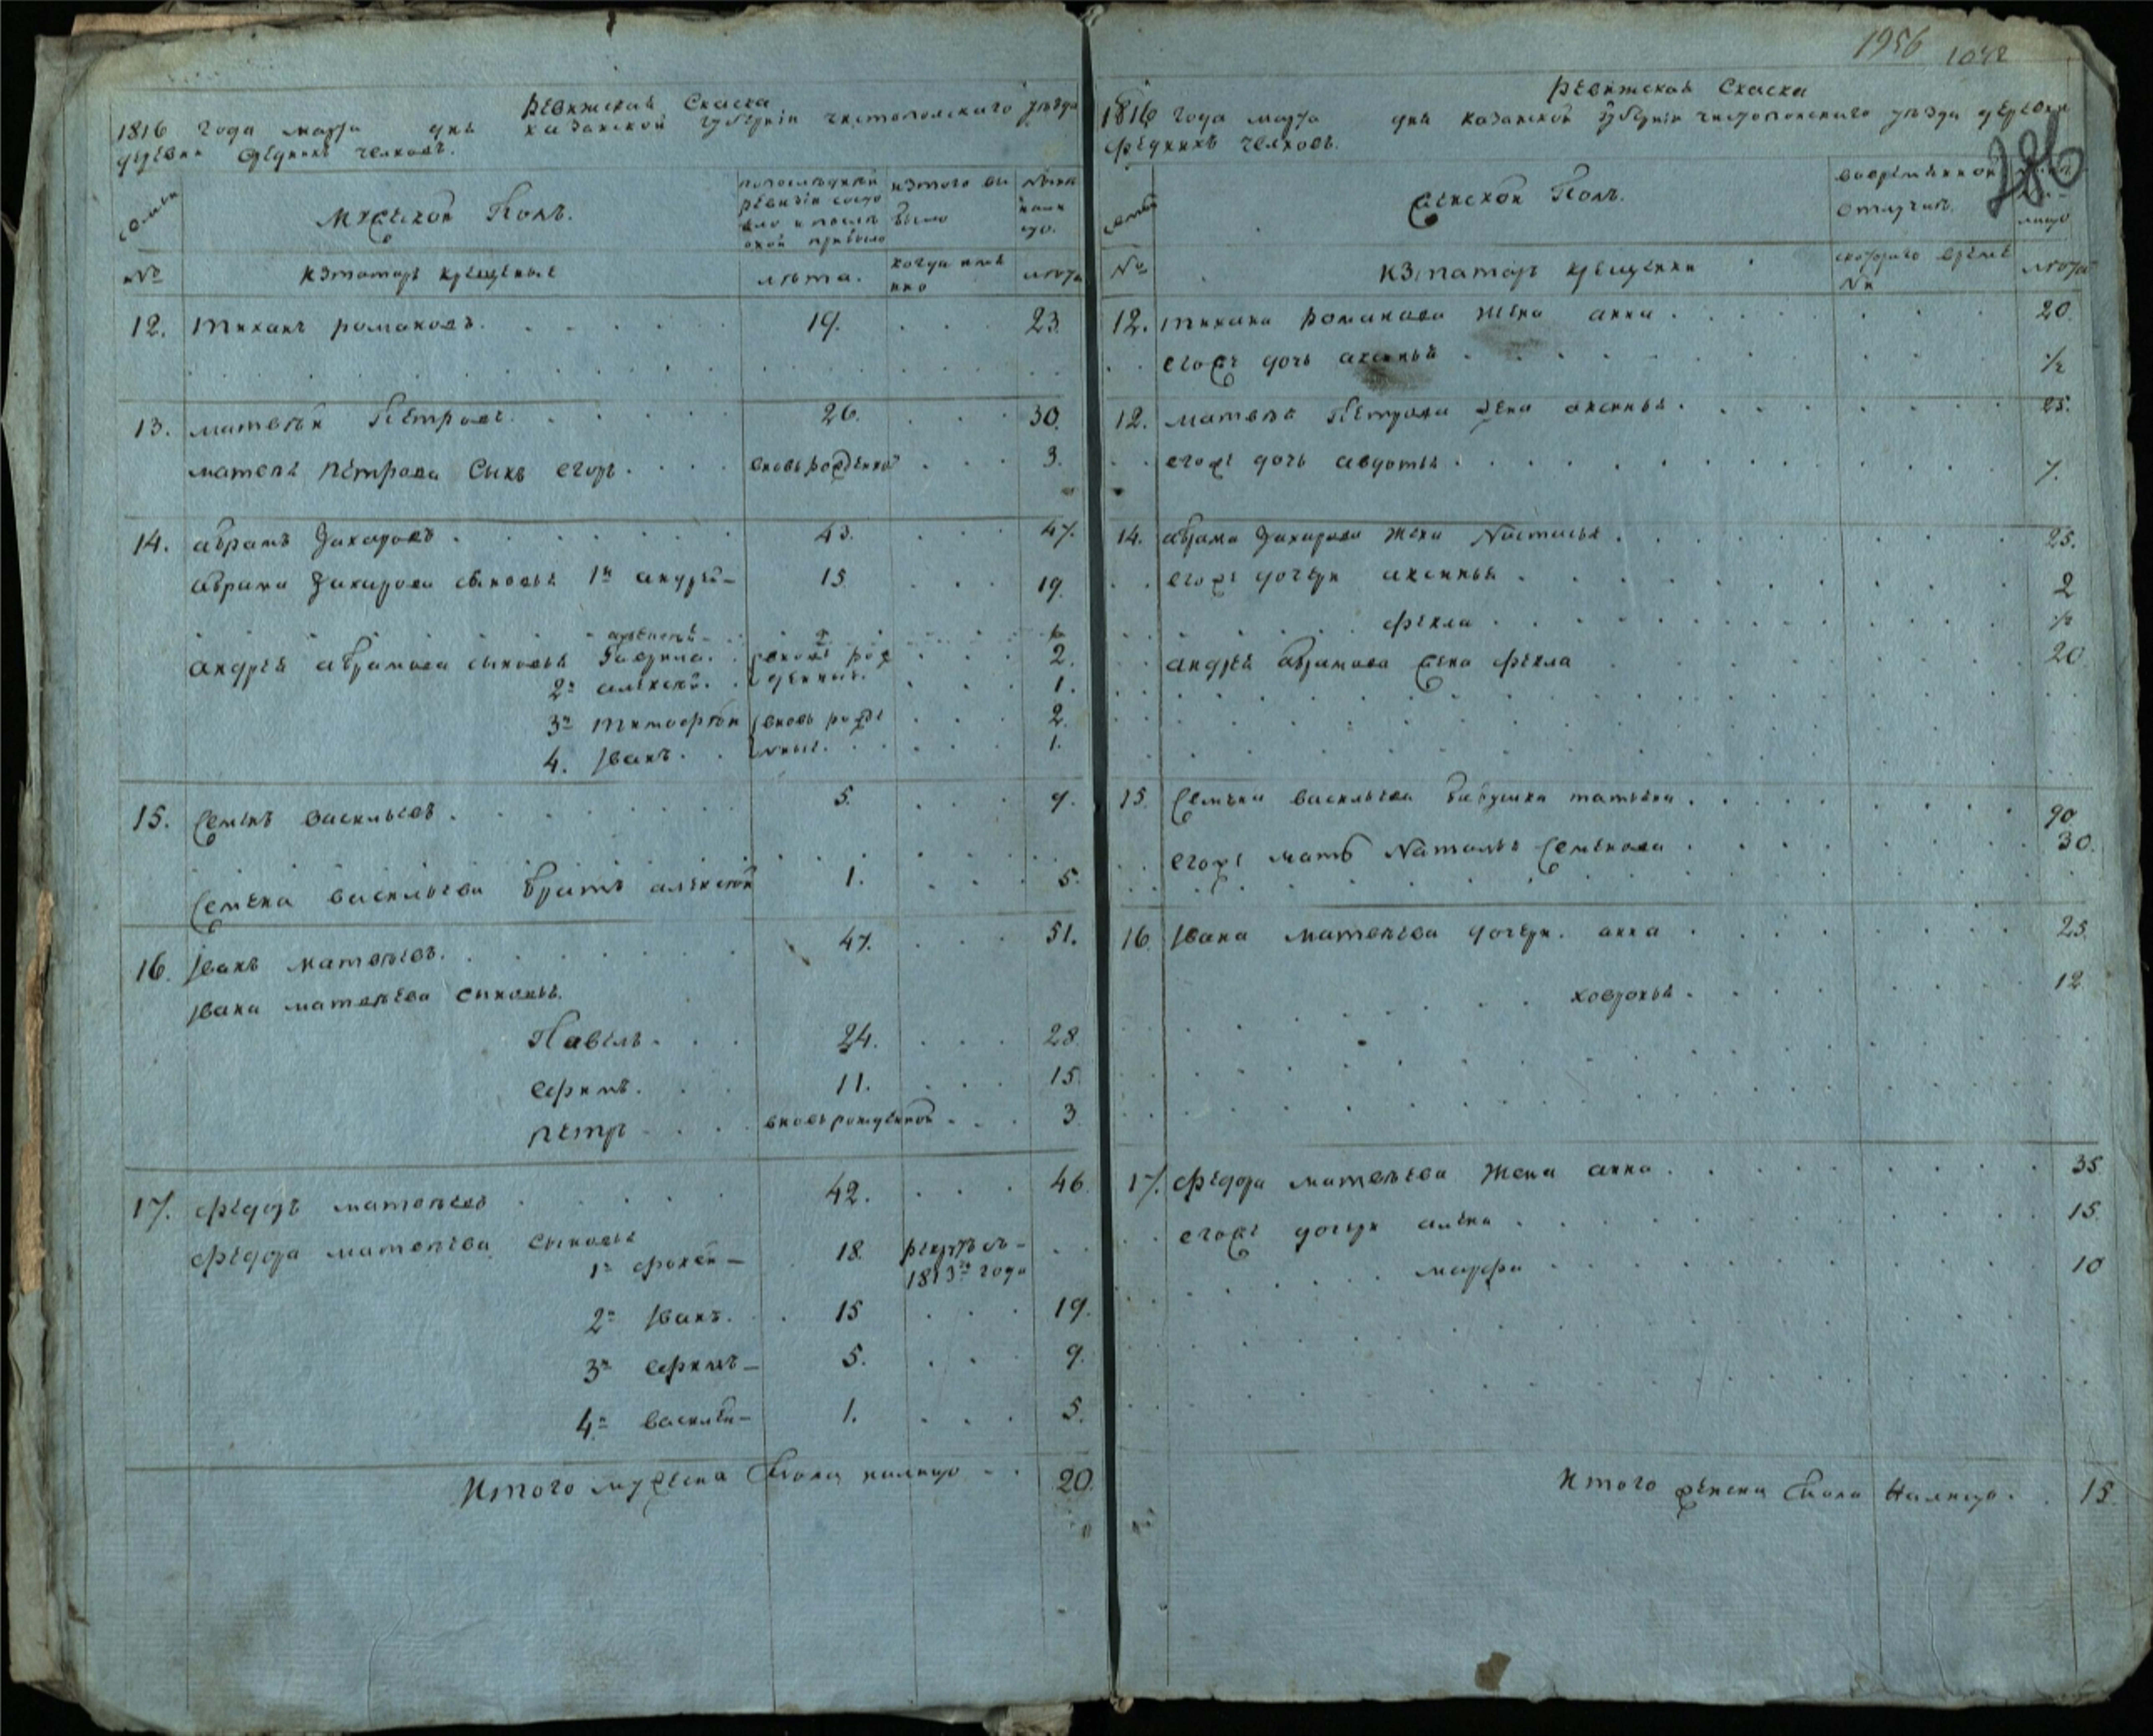 1956 1042
286
Ревижская Скаска
1816 года марта дня казанской губернiи чистопольского уезда
деревни Средних челновъ.
семьи
Мужескои Полъ.
по последней ревизiи состояло и после оной прибыло
изтого вы было
ныне на лицо.
№
изтатаръ крещеные
лета.
когда имянно
лета
12. Тиханъ романовъ. 19. 23.
13. матвей Петровъ. 26. 30.
матвея петрова сынъ егоръ. вновьрожденной 3.
14. абрамъ Захаровъ. 43. 47.
абрама Захарова сыновья 1й андрей 15 19.
андрея абрамова сыновья Гаврила. вновь рож 2.
2й алексей. денные. 1.
3й тимофей вновь рожде 2.
4. Иванъ. нные. 1.
15. Семенъ васильевъ. 5. 9.
Семена васильева братъ алексей 1. 5.
16. Иванъ матвеевъ. 47. 51.
Ивана матвеева сыновья.
Павелъ. 24. 28
ефимъ. 11. 15.
петръ вновьрожденной 3
17. федоръ матвеевъ 42. 46.
федора матвеева сыновья
1й фокей 18. рекрутъ съ
1813го года
2й Иванъ. 15 19.
3й ефимъ 5. 9.
4й василей 1. 5.
Итого мужеска пола налицо 20.
Ревижская Скаска
1816 года марта дня казанской губернiи чистопольского уезда деревни
Средних челновъ.
семьи
Женскои Полъ.
вовременной отлучке.
лицо
№
изтатаръ крещенки
скоторого время ни
лета
12. тихана романова жена анна. 20.
егоже дочь аксинья 1/2
12. матвея Петрова жена аксинья. 25.
егоже дочь авдотья. 7.
14. абрама Захарова жена Настасья. 25.
егоже дочери аксинья. 2
фекла 1/2
андрея абрамова жена фекла 20
15. Семена васильева бабушка татьяна. 90
егоже мать Наталья Семенова 30.
16. Ивана матвеева дочери. анна 25.
ховронья. 12
17. федора матвеева жена анна. 35
егоже дочери алена 15.
марфа 10
Итого женска пола Налицо. 15.